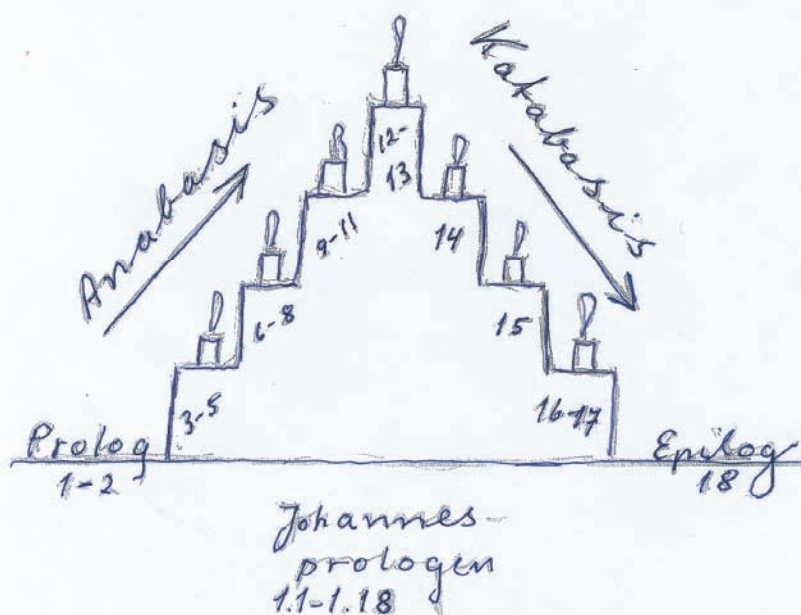 Anabasis
Katabasis
12-
13
9-11
14
6-8
15
3-5
16-17
Prolog
1-2
Epilog
18
Johannes-
prologen
1.1-1.18